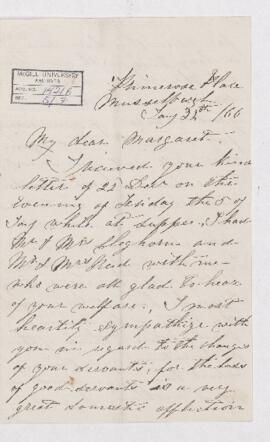 McGILL UNIVERSITY
ARCHIVES
ACC. NO. 1421
REF.
Primrose Place
Musselburgh
Jany /66
My dear Margaret
I received your kind
letter of 22 Decr on the
evening of Friday the 5 of
Jany while at supper. I had
Mr & Mrs Cleghorn and
Mr & Mrs Reid with me
who were all glad to hear
of your welfare, I most
heartily sympathize with
you in regard to the changes
of your servants, for the loss
of good servants is a very
great domestic affliction